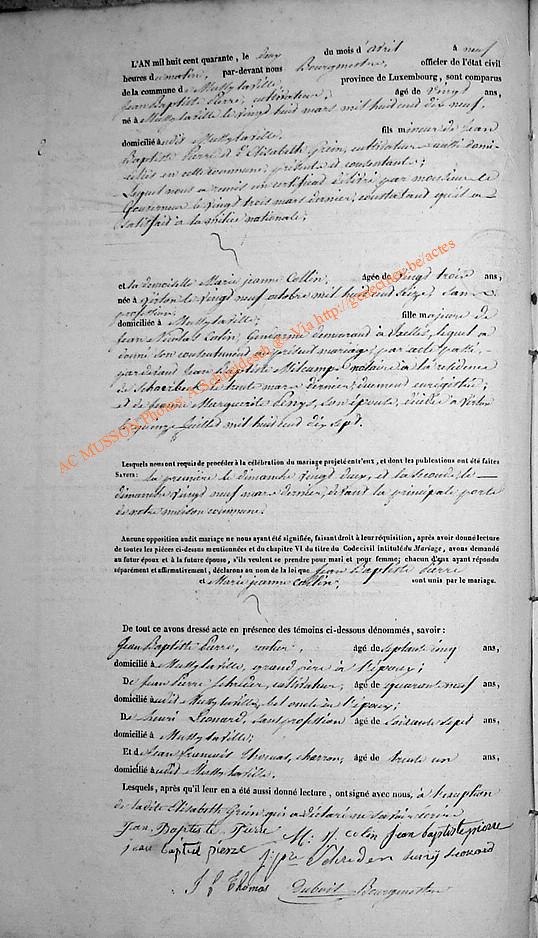 L'AN mil huit cent quarante, le deux du mois d'avril à neuf
heures du matin, par-devant nous Bourgmestre, officier de l'état civil
de la commune de Mussy la ville, province de Luxembourg, sont comparus
Jean Baptiste Pierre, cultivateur, âgé de vingt ans,
né à Mussy la ville le vingt huit mars mil huit cent dix neuf.
domicilié audit Mussy la ville. fils mineur de Jean
Baptiste Pierre et d'Elisabeth cultivateurs domi-
ciliés en cette commune, présents et consentants;
Lequel nous a remis un certificat délivré par monsieur le
Gouverneur le vingt trois mars dernier, constatant qu'il a
satisfait à la milice nationale;
et la demoiselle Marie jeanne Collin, âgée de vingt trois ans,
née à Virton le vingt neuf octobre mil huit cent seize, sans
profession,
domiciliée à Mussy la ville; fille majeure de
Jean Nicolas Colin, Gendarme demeurant à Ixelles, lequel a
donné son consentement au présent mariage, par acte passé
par devant Jean Baptiste notaire à la résidence
de Schaerbeek, le mars dernier, dument enregistré;
et de Jeanne Marguerite son épouse, décédée à Virton
le quinze Juillet mil huit cent dix sept.
Lesquels nous ont requis de procéder à la célébration du mariage projeté entr'eux, et dont les publications ont été faites
SAVOIR: la première le dimanche vingt deux, et la seconde le
dimanche vingt neuf mars dernier, devant la principale porte
de notre maison commune.
Aucune opposition audit mariage ne nous ayant été signifiée, faisant droit à leur réquisition, après avoir donné lecture
de toutes les pièces ci-dessus mentionnées et du chapitre VI du titre du Code civil intitulé du Mariage, avons demandé
au futur époux et à la future épouse, s'ils veulent se prendre pour mari et pour femme; chacun d'eux ayant répondu
séparément et affirmativement, déclarons au nom de la loi que Jean Baptiste Pierre
et Marie jeanne Collin, sont unis par le mariage.
De tout ce avons dressé acte en présence des témoins ci-dessous dénommés, savoir:
Jean Baptiste Pierre, rentier, âgé de septante cinq ans,
domicilié à Mussy la ville, grand père à l'époux;
De Jean Pierre cultivateur, âgé de quarante neuf ans,
domicilié audit Mussy la ville, bel oncle de l'époux;
De henri Léonard, sans profession âgé de soixante sept ans,
domicilié à Mussy la ville;
Et de Jean François Thomas, charron, âgé de trente un ans,
domicilié audit Mussy la ville.
Lesquels, après qu'il leur en a été aussi donné lecture, ont signé avec nous, à l'exception
de ladite Elisabeth qui a déclaré ne savoir écrire
Jean Baptiste Pierre M: J. Colin Jean baptiste pierre
jean baptist pierre henry Leonard
J L Thomas Bourgmestre
AC MUSSON Photos: A.Schieldesch @: Via http://geneenger.be/actes